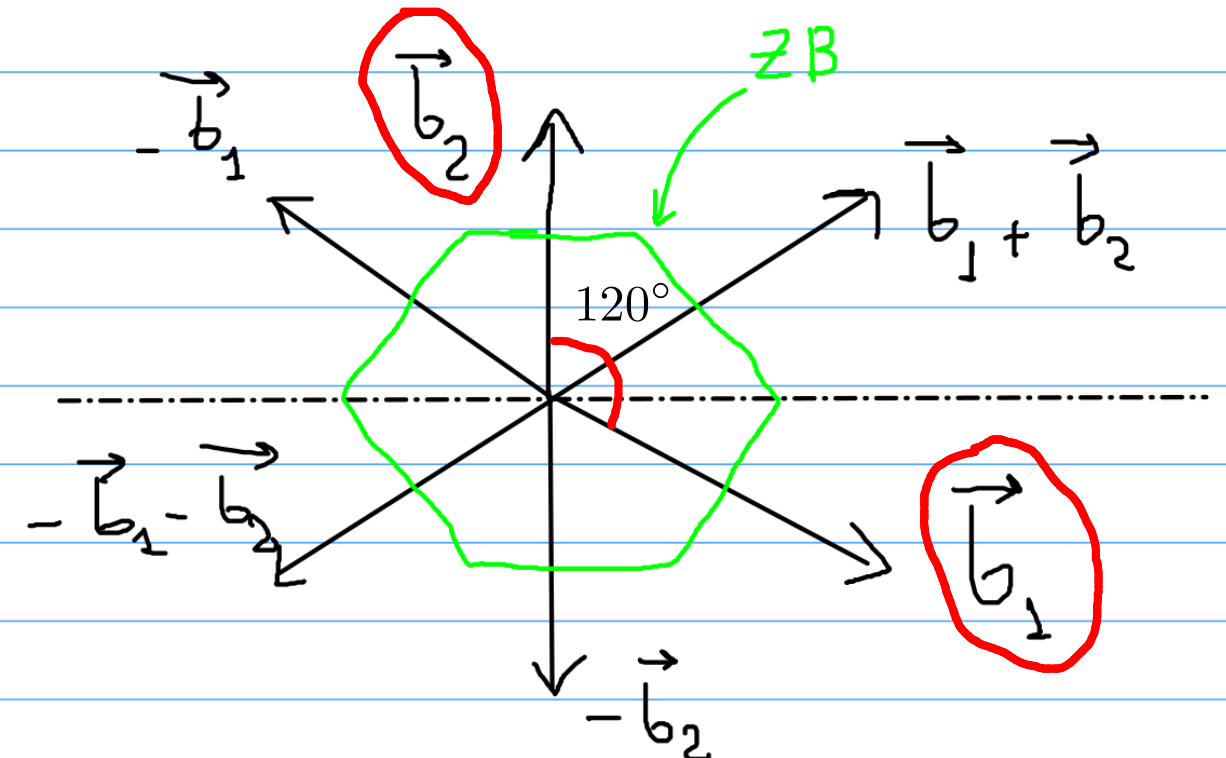 ZB
$\vec{b}_2$
$-\vec{b}_1$
$\vec{b}_1 + \vec{b}_2$
120°
$-\vec{b}_1 - \vec{b}_2$
$\vec{b}_1$
$-\vec{b}_2$